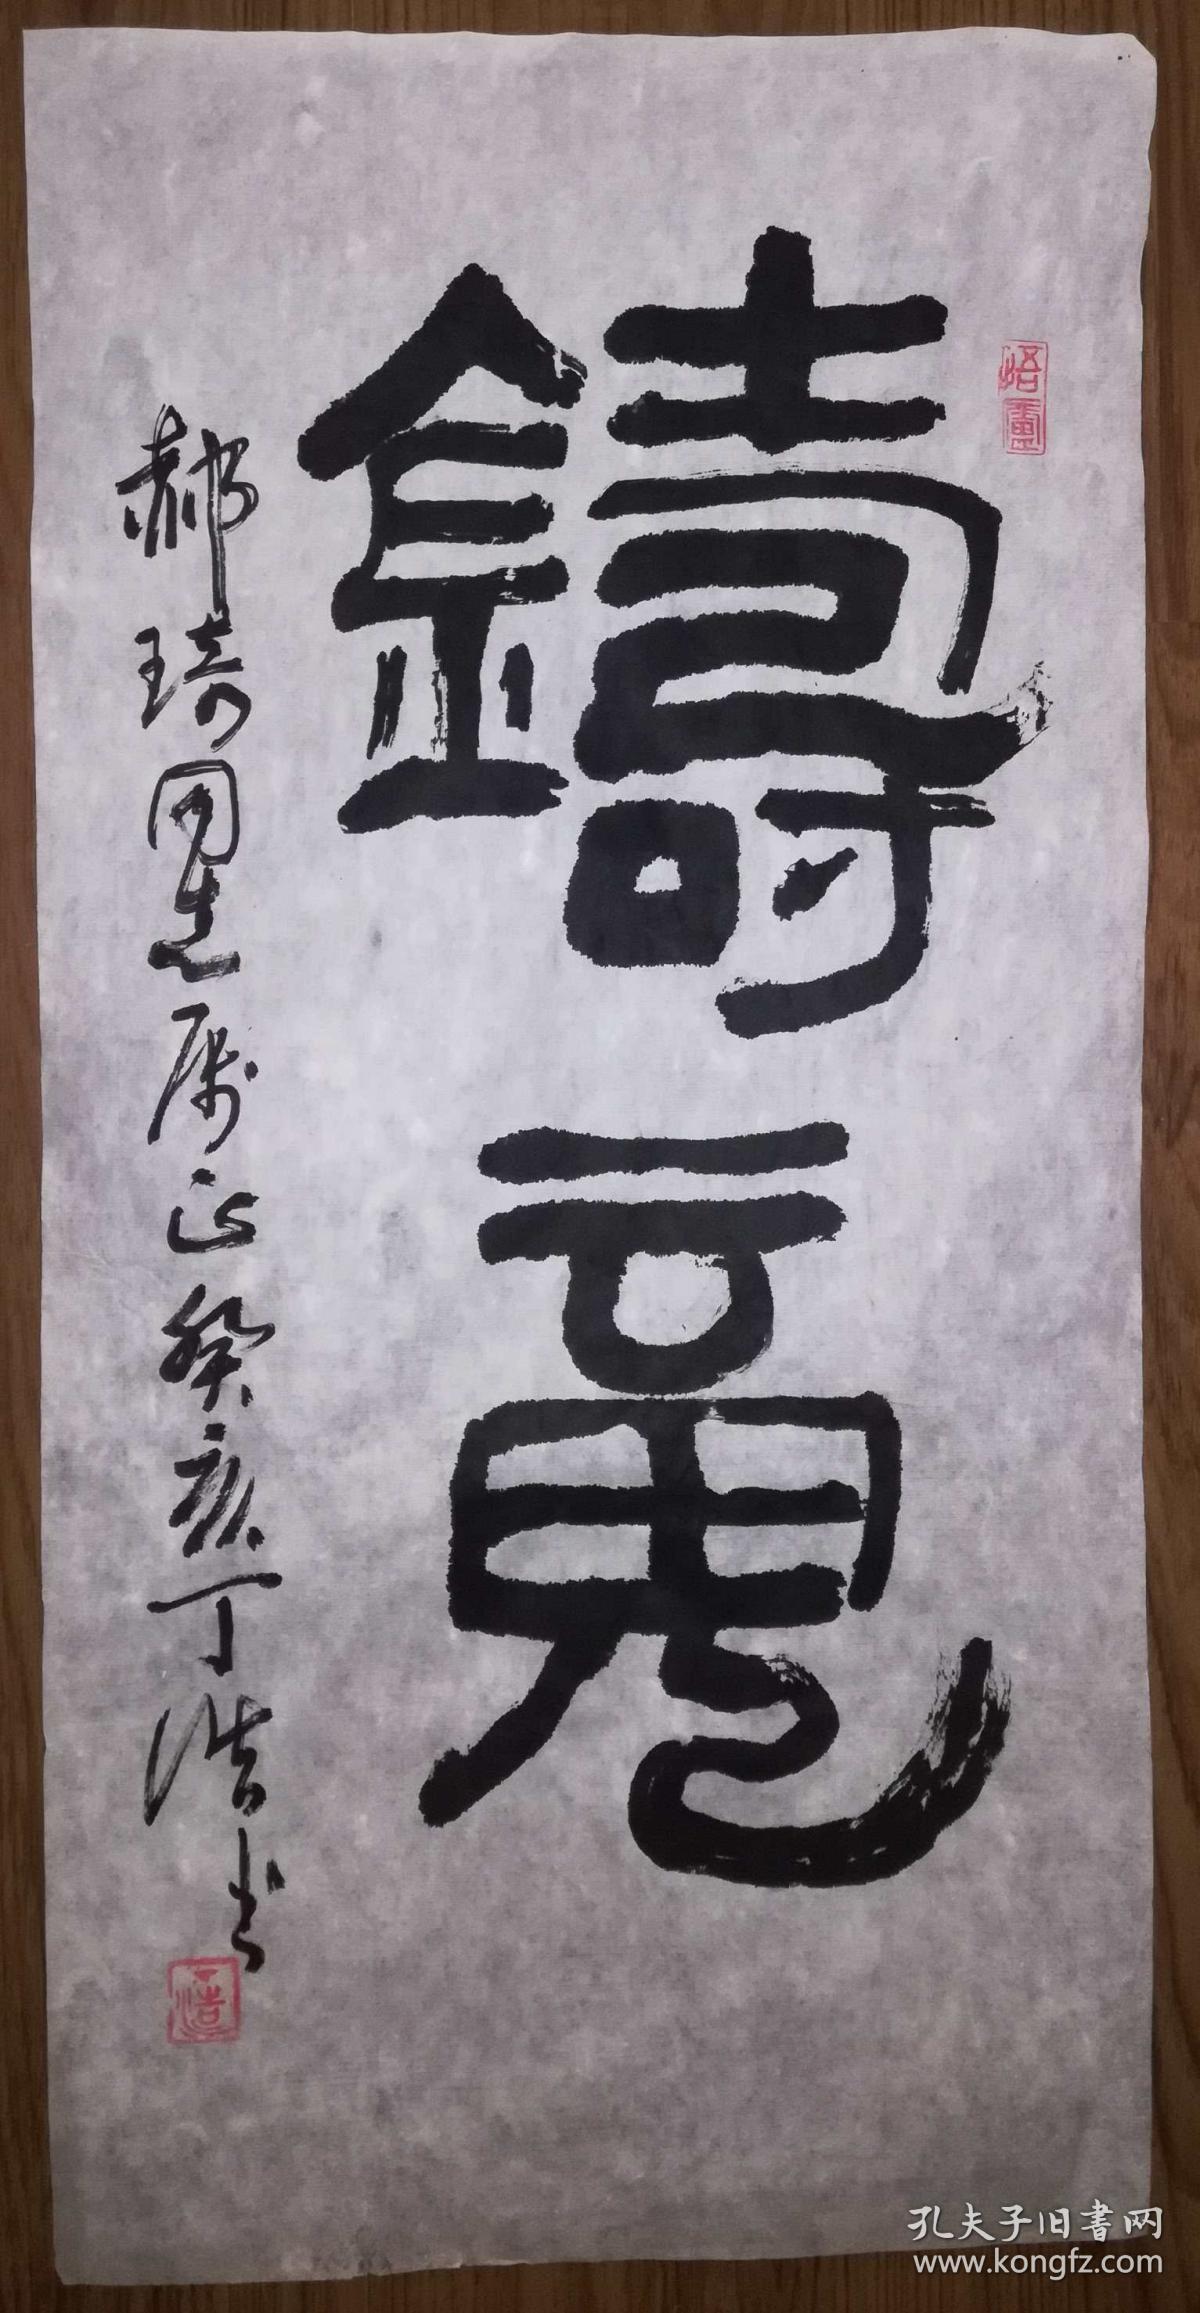 鑄魂
郝琦同志属正癸亥丁浩书
丁浩
孔夫子旧書网
www.kongfz.com